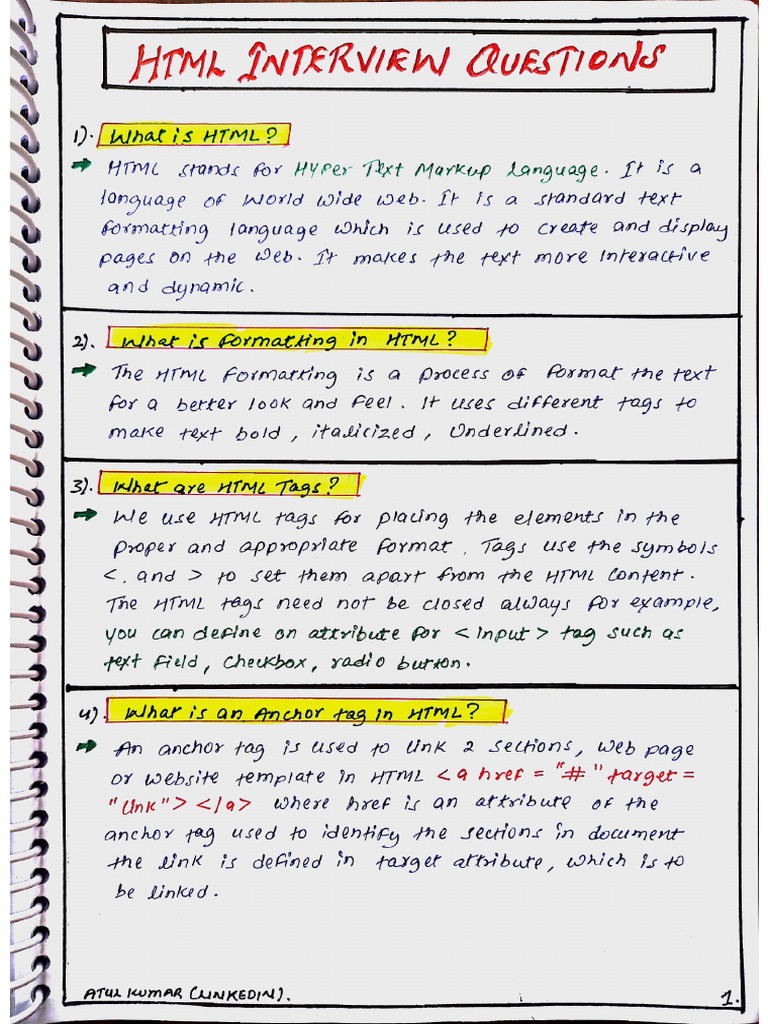 HTML INTERVIEW QUESTIONS
1). What is HTML?
→ HTML stands for Hyper Text Markup Language. It is a
language of World Wide Web. It is a standard text
formatting language which is used to create and display
pages on the Web. It makes the text more interactive
and dynamic.
2). What is formatting in HTML?
→ The HTML formatting is a process of format the text
for a better look and feel. It uses different tags to
make text bold, italicized, Underlined.
3). What are HTML Tags?
→ We use HTML tags for placing the elements in the
proper and appropriate format. Tags use the symbols
<, and > to set them apart from the HTML content.
The HTML tags need not be closed always for example,
you can define on attribute for <input> tag such as
text field, checkbox, radio button.
4). What is an Anchor tag in HTML?
→ An anchor tag is used to link 2 sections, web page
or website template in HTML <a href = "#" target =
"link"> </a> where href is an attribute of the
anchor tag used to identify the sections in document
the link is defined in target attribute, which is to
be linked.
ATUL KUMAR (LINKEDIN).
1.